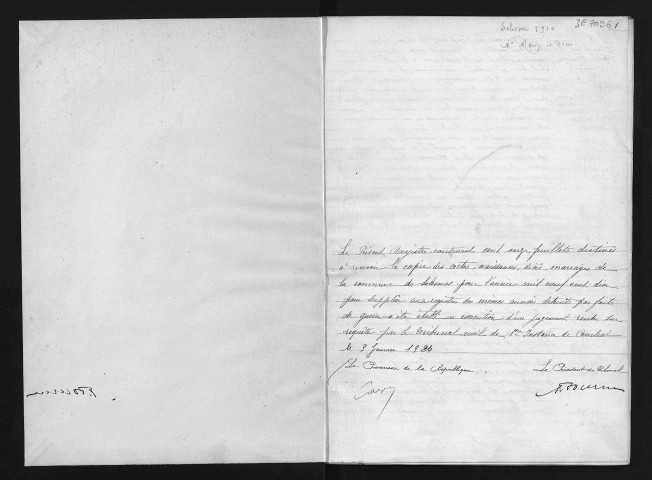 3E 10961
Solesmes 1910
Le Présent Registre contenant cent onze feuillets destinés
à recevoir la copie des actes, naissances, décès mariages de
la commune de Solesmes pour l'année mil neuf cent dix
pour suppléer aux registres des mêmes années détruits par faits
de guerre a été établi en exécution d'un jugement rendu sur
requête par le Tribunal civil de 1ère Instance de Cambrai
le 3 Janvier 1924
Le Procureur de la République
Le Président du Tribunal